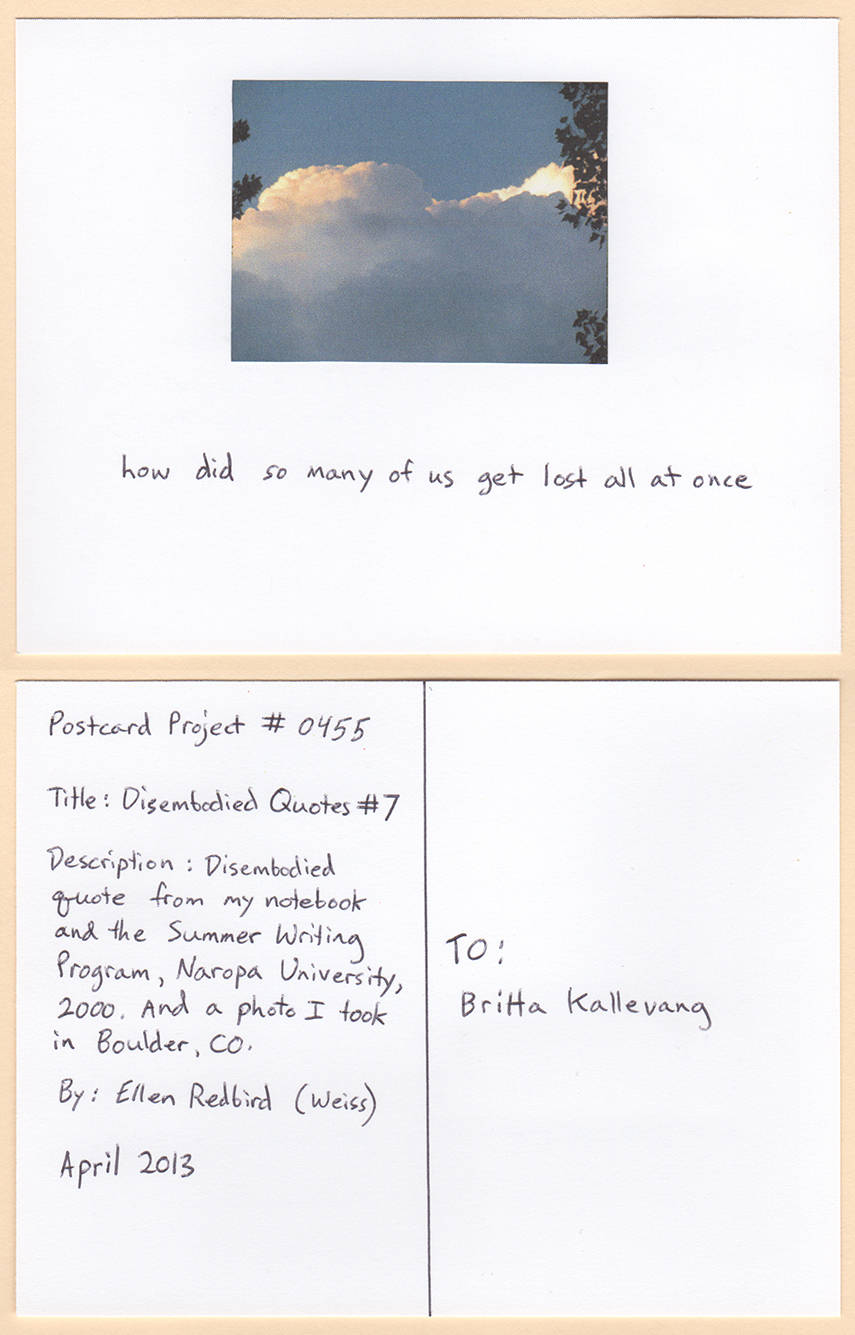 how did so many of us get lost all at once
Postcard Project # 0455
Title: Disembodied Quotes #7
Description: Disembodied
quote from my notebook
and the Summer Writing
Program, Naropa University,
2000. And a photo I took
in Boulder, CO.
By: Ellen Redbird (Weiss)
April 2013
TO:
Britta Kallevang